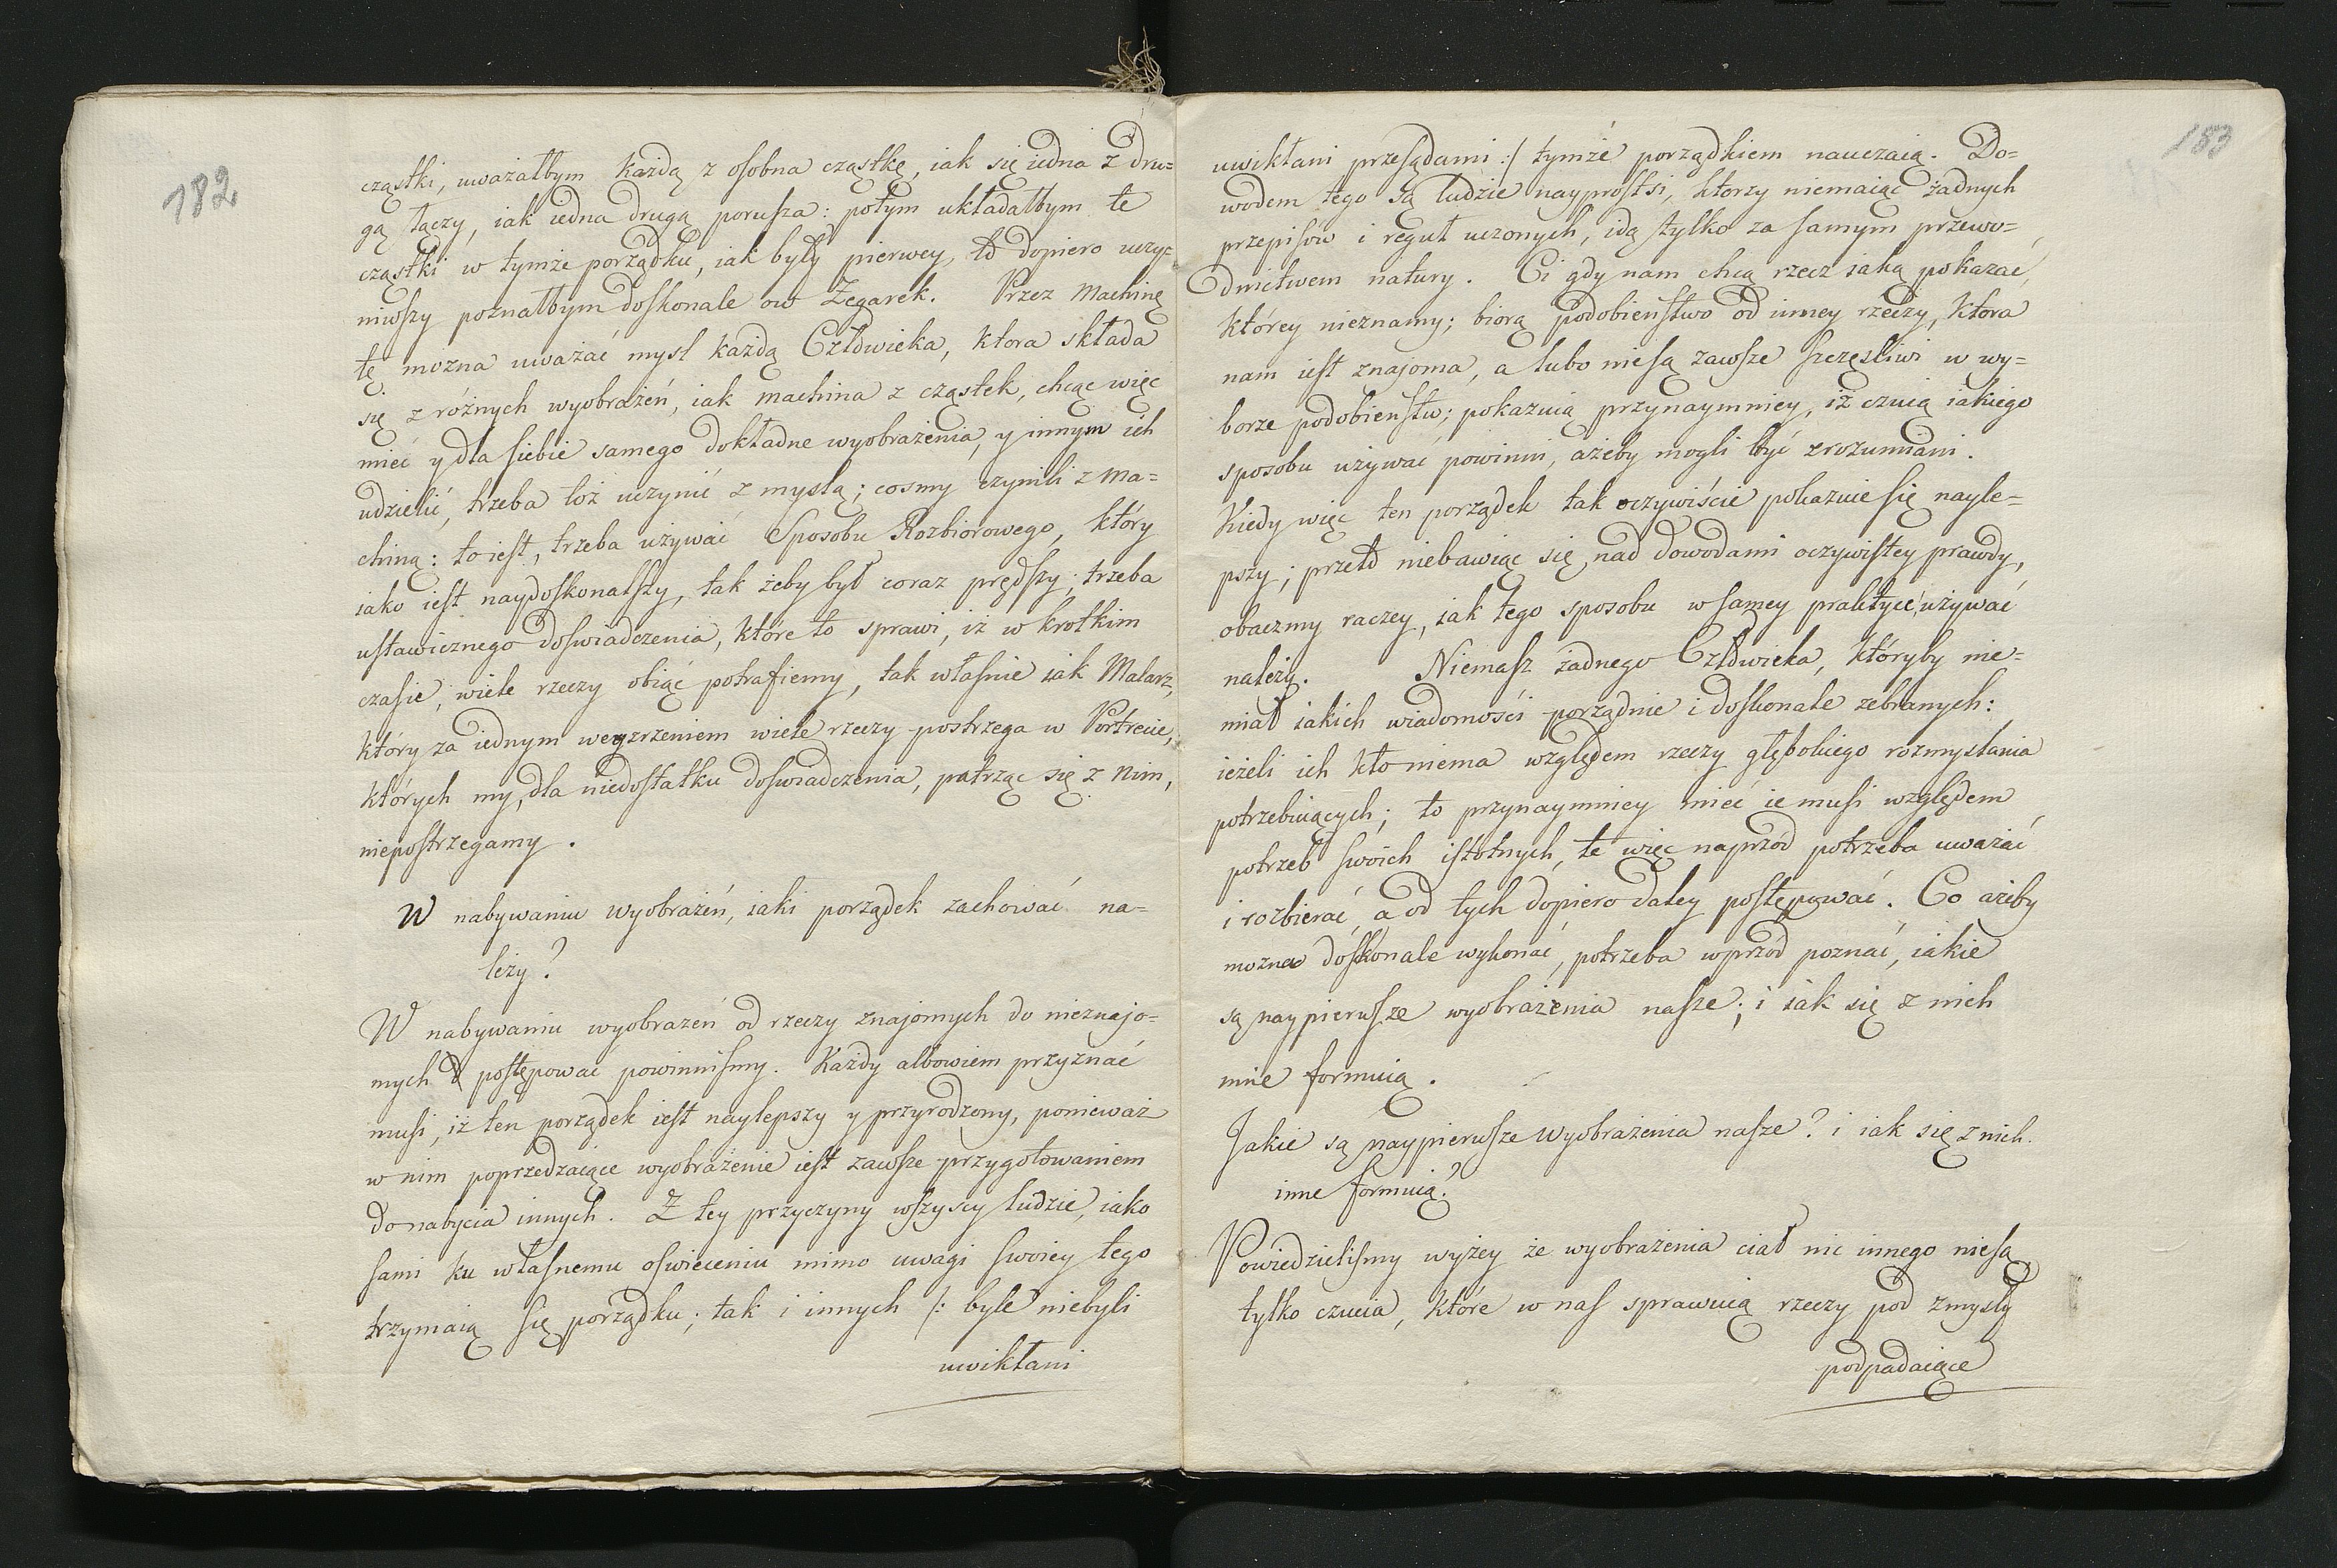 182
cząstki, uważałbym każdą z osobna cząstkę, iak się iedna z dru=
gą łączy, iak iedna drugą porusza: potym układałbym te
cząstki w tymże porządku, iak były pierwey, to dopiero uczy=
niwszy poznałbym doskonale ow Zegarek. Przez Machinę
tę można uważać mysl każdą Człowieka, ktora składa
się z różnych wyobrażeń, iak machina z cząstek, chcąc więc
mieć y dla siebie samego dokładne wyobrażenia, y innym ich
udzielić, trzeba toż uczynić z myslą; cosmy czynili z Ma=
chiną: to iest, trzeba używać Sposobu Rozbiorowego, który
iako iest naydoskonalszy, tak żeby był coraz prędszy; trzeba
ustawicznego doswiadczenia, które to sprawi, iż w krotkim
czasie, wiele rzeczy obiąć potrafiemy, tak własnie iak Malarz,
który za iednym weyzrzeniem wiele rzeczy postrzega w Portrecie,
których my, dla niedostatku doswiadczenia, patrząc się z nim,
niepostrzegamy.
W nabywaniu wyobrażeń, iaki porządek zachować na=
leży?
W nabywaniu wyobrażeń od rzeczy znajomych do nieznajo=
mych postępować powinnismy. Każdy albowiem przyznać
musi, iż ten porządek iest naylepszy y przyrodzony, ponieważ
w nim poprzedzaiące wyobrażenie iest zawsze przygotowaniem
do nabycia innych. Z tey przyczyny wszyscy ludzie, iako
sami ku własnemu oswieceniu mimo uwagi swoiey tego
trzymaią się porządku; tak i innych /: byle niebyli
uwikłani
183
uwikłani przesądami :/ tymże porządkiem nauczaią. Do=
wodem tego są ludzie nayprostsi, ktorzy niemaiąc żadnych
przepisów i reguł uczonych, idą tylko za samym przewo=
dnictwem natury. Ci gdy nam chcą rzecz iaką pokazać,
którey nieznamy; biorą podobieństwo od inney rzeczy, ktora
nam iest znajoma, a lubo niesą zawsze szczęsliwi w wy=
borze podobieństw; pokazuią przynaymniey, iż czuią iakiego
sposobu używać powinni, ażeby mogli być zrozumiani.
Kiedy więc ten porządek tak oczywiście pokazuie się nayle=
pszy; przeto niebawiąc się nad dowodami oczywistey prawdy,
obaczmy raczey, iak tego sposobu w samey praktyce używać
należy. Niemasz żadnego Człowieka, któryby nie=
miał iakich wiadomości porządnie i doskonale zebranych:
ieżeli ich kto niema względem rzeczy głębokiego rozmyslania
potrzebuiących; to przynaymniey mieć ie musi względem
potrzeb swoich istotnych, te więc naprzód potrzeba uważać
i rozbierać, a od tych dopiero daley postępować. Co ażeby
można doskonale wykonać, potrzeba wprzód poznać, iakie
są naypierwsze wyobrażenia nasze; i iak się z nich
inne formuią.
Jakie są naypierwsze Wyobrażenia nasze? i iak się z nich.
inne formuią?
Powiedzielismy wyżey że wyobrażenia ciał nic innego niesą
tylko czucia, które w nas sprawuią rzeczy pod zmysły
podpadaiące